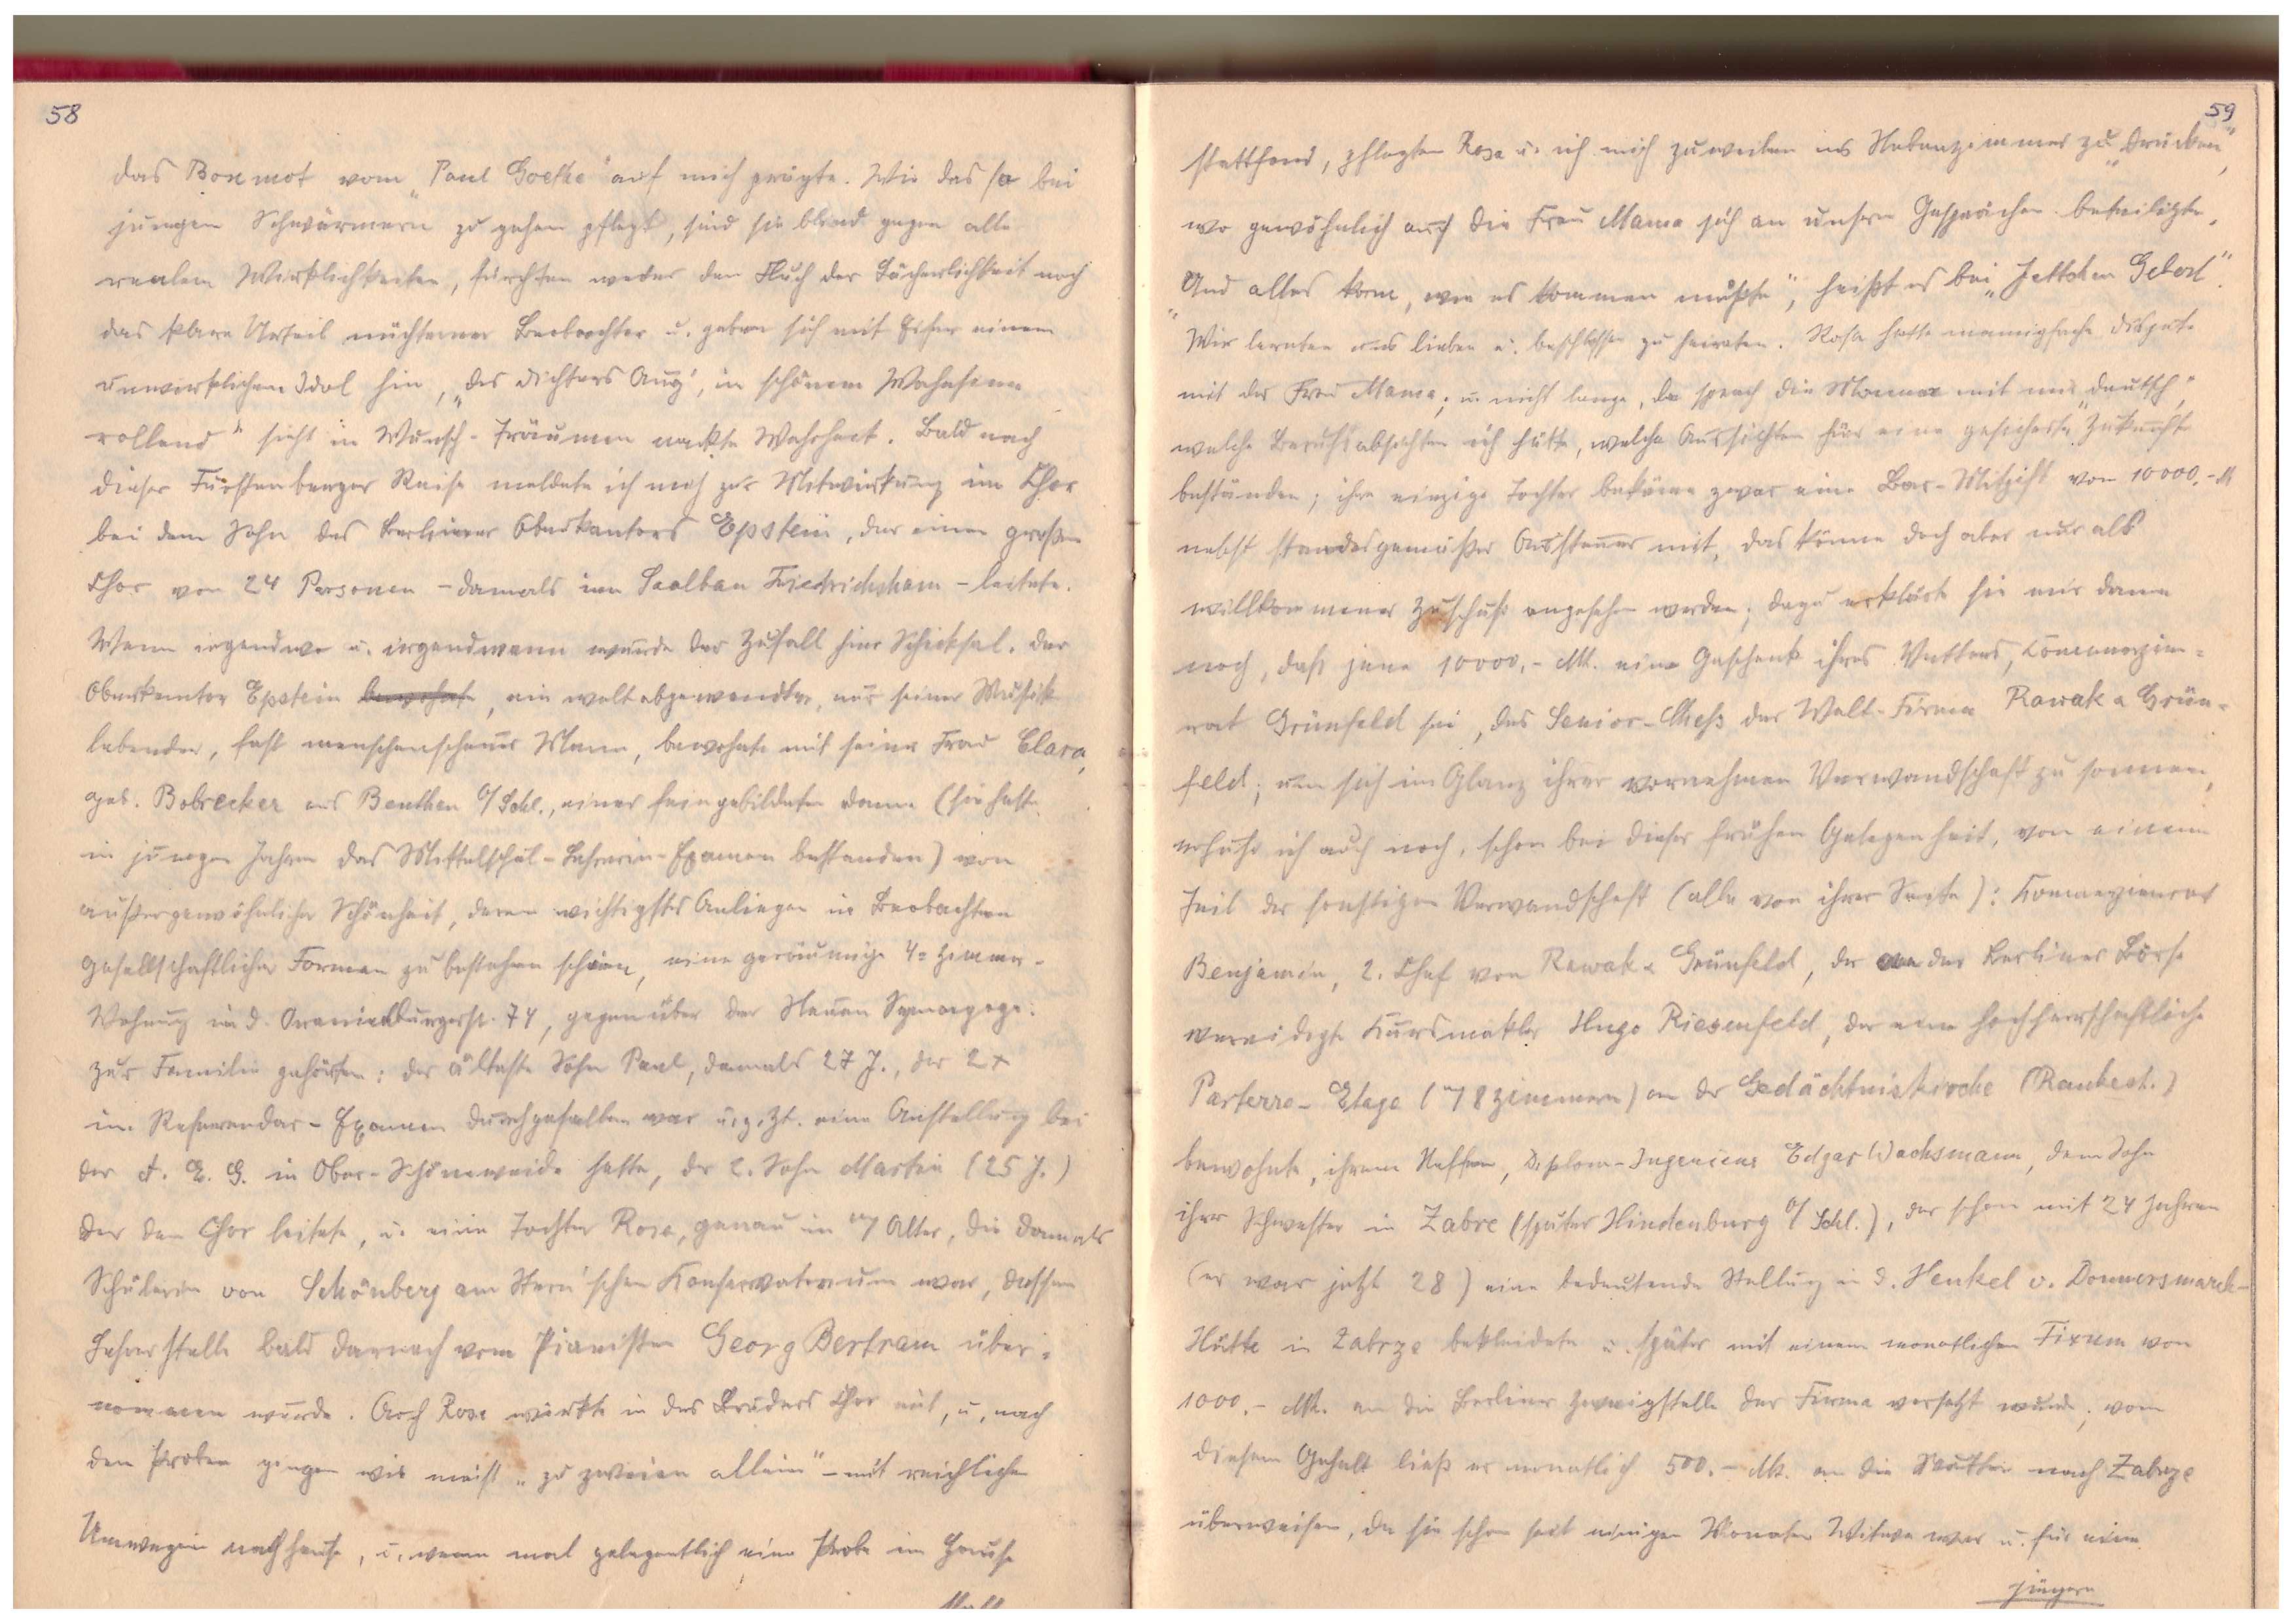 58
das Bonmot vom „Paul Goethe" auf mich prägte. Wie das so bei
jungen Schwärmern zu gehen pflegt, sind sie blind gegen alle
realen Wirklichkeiten, fürchten weder den Fluch der Lächerlichkeit noch
das klare Urteil nüchterner Beobachter u. geben sich mit Eifer einem
unwirklichen Idol hin, „des Dichters Aug', in schönem Wahnsinn
rollend" sieht in Wunsch-Träumen nackte Wahrheit. Bald nach
dieser Fürstenberger Reise meldete ich mich zur Mitwirkung im Chor
bei dem Sohn des Berliner Oberkantors Epstein, der einen großen
Chor von 24 Personen - damals im Saalbau Friedrichshain - leitete.
Wenn irgendwo u. irgendwann wurde der Zufall hier Schicksal. Der
Oberkantor Epstein bewohnte, ein weltabgewandter, nur seiner Musik
lebender, fast menschenscheuer Mann, bewohnte mit seiner Frau Clara,
geb. Bobrecker aus Beuthen O/Schl., einer feingebildeten Dame (sie hatte
in jungen Jahren das Mittelschul-Lehrerin-Examen bestanden) von
außergewöhnlicher Schönheit, deren wichtigstes Anliegen im Beobachten
gesellschaftlicher Formen zu bestehen schien, eine geräumige 4-Zimmer-
Wohnung in d. Oranienburgerstr. 74, gegenüber der Neuen Synagoge.
Zur Familie gehörten: der älteste Sohn Paul, damals 27 J., der 2x
im Referendar-Examen durchgefallen war u. z. Zt. eine Anstellung bei
der A. E. G. in Ober-Schöneweide hatte, der 2. Sohn Martin (25 J.)
der den Chor leitete, u. eine Tochter Rosa, genau im Alter, die damals
Schülerin von Schönberg am Stern'schen Konservatorium war, dessen
Lehrerstelle bald darnach vom Pianisten Georg Bertram über-
nommen wurde. Auch Rosa wirkte in des Bruders Chor mit, u. nach
den Proben gingen wir meist „zu zweien allein" - mit reichlichen
Umwegen nach Hause, u. wenn mal gelegentlich eine Probe im Hause
statt
59
stattfand, pflegten Rosa u. ich mich zuweilen ins Nebenzimmer zu „drücken",
wo gewöhnlich auch die Frau Mama sich an unsern Gesprächen beteiligte.
„Und alles kam, wie es kommen mußte", heißt es bei „Jettchen Gebert".
Wir lernten uns lieben u. beschlossen zu heiraten. Rosa hatte mannigfache Dispute
mit der Frau Mama; u. nicht lange, da sprach die Mama mit mir „deutsch",
welche Berufsabsichten ich hätte, welche Aussichten für eine gesicherte Zukunft
bestünden; ihre einzige Tochter bekäme zwar eine Bar-Mitgift von 10000.- M
nebst standesgemäßer Aussteuer mit, das könne doch aber nur als
willkommener Zuschuß angesehen werden; dazu erklärte sie mir dann
noch, daß jene 10000.- Mk. eine Geschenk ihres Vetters, Commerzien-
rat Grünfeld sei, des Senior-Chefs der Welt-Firma Rawak & Grün-
feld; um sich im Glanz ihrer vornehmen Verwandschaft zu sonnen,
erfuhr ich auch noch, schon bei dieser frühen Gelegenheit, von einem
Teil der sonstigen Verwandschaft (alle von ihrer Seite): Kommerzienrat
Benjamin, 2. Chef von Rawak & Grünfeld, der an der Berliner Börse
vereidigte Kursmakler Hugo Riesenfeld, der eine hochherrschaftliche
Parterre-Etage (8 Zimmern) an der Gedächtniskirche (Rankestr.)
bewohnte, ihrem Neffen, Diplom-Ingenieur Edgar Wachsmann, dem Sohn
ihrer Schwester in Zabre (später Hindenburg O/Schl.), der schon mit 24 Jahren
(er war jetzt 28) eine bedeutende Stellung in d. Henkel v. Donnersmarck-
Hütte in Zabrze bekleidete u. später mit einem monatlichen Fixum von
1000.- Mk. an die Berliner Zweigstelle der Firma versetzt wurde; von
diesem Gehalt ließ er monatlich 500.- Mk. an die Mutter nach Zabrze
überweisen, da sie schon seit einigen Monaten Witwe war u. für einen
jüngern